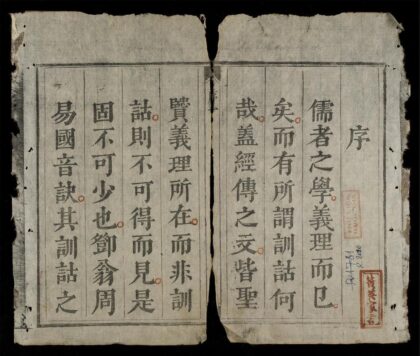 序
儒者之學義理而已
矣而有所謂訓詁何
哉盖經傳之文皆聖
賢義理所在而非訓
詁則不可得而見是
固不可少也鄧翁周
易國音訣其訓詁之